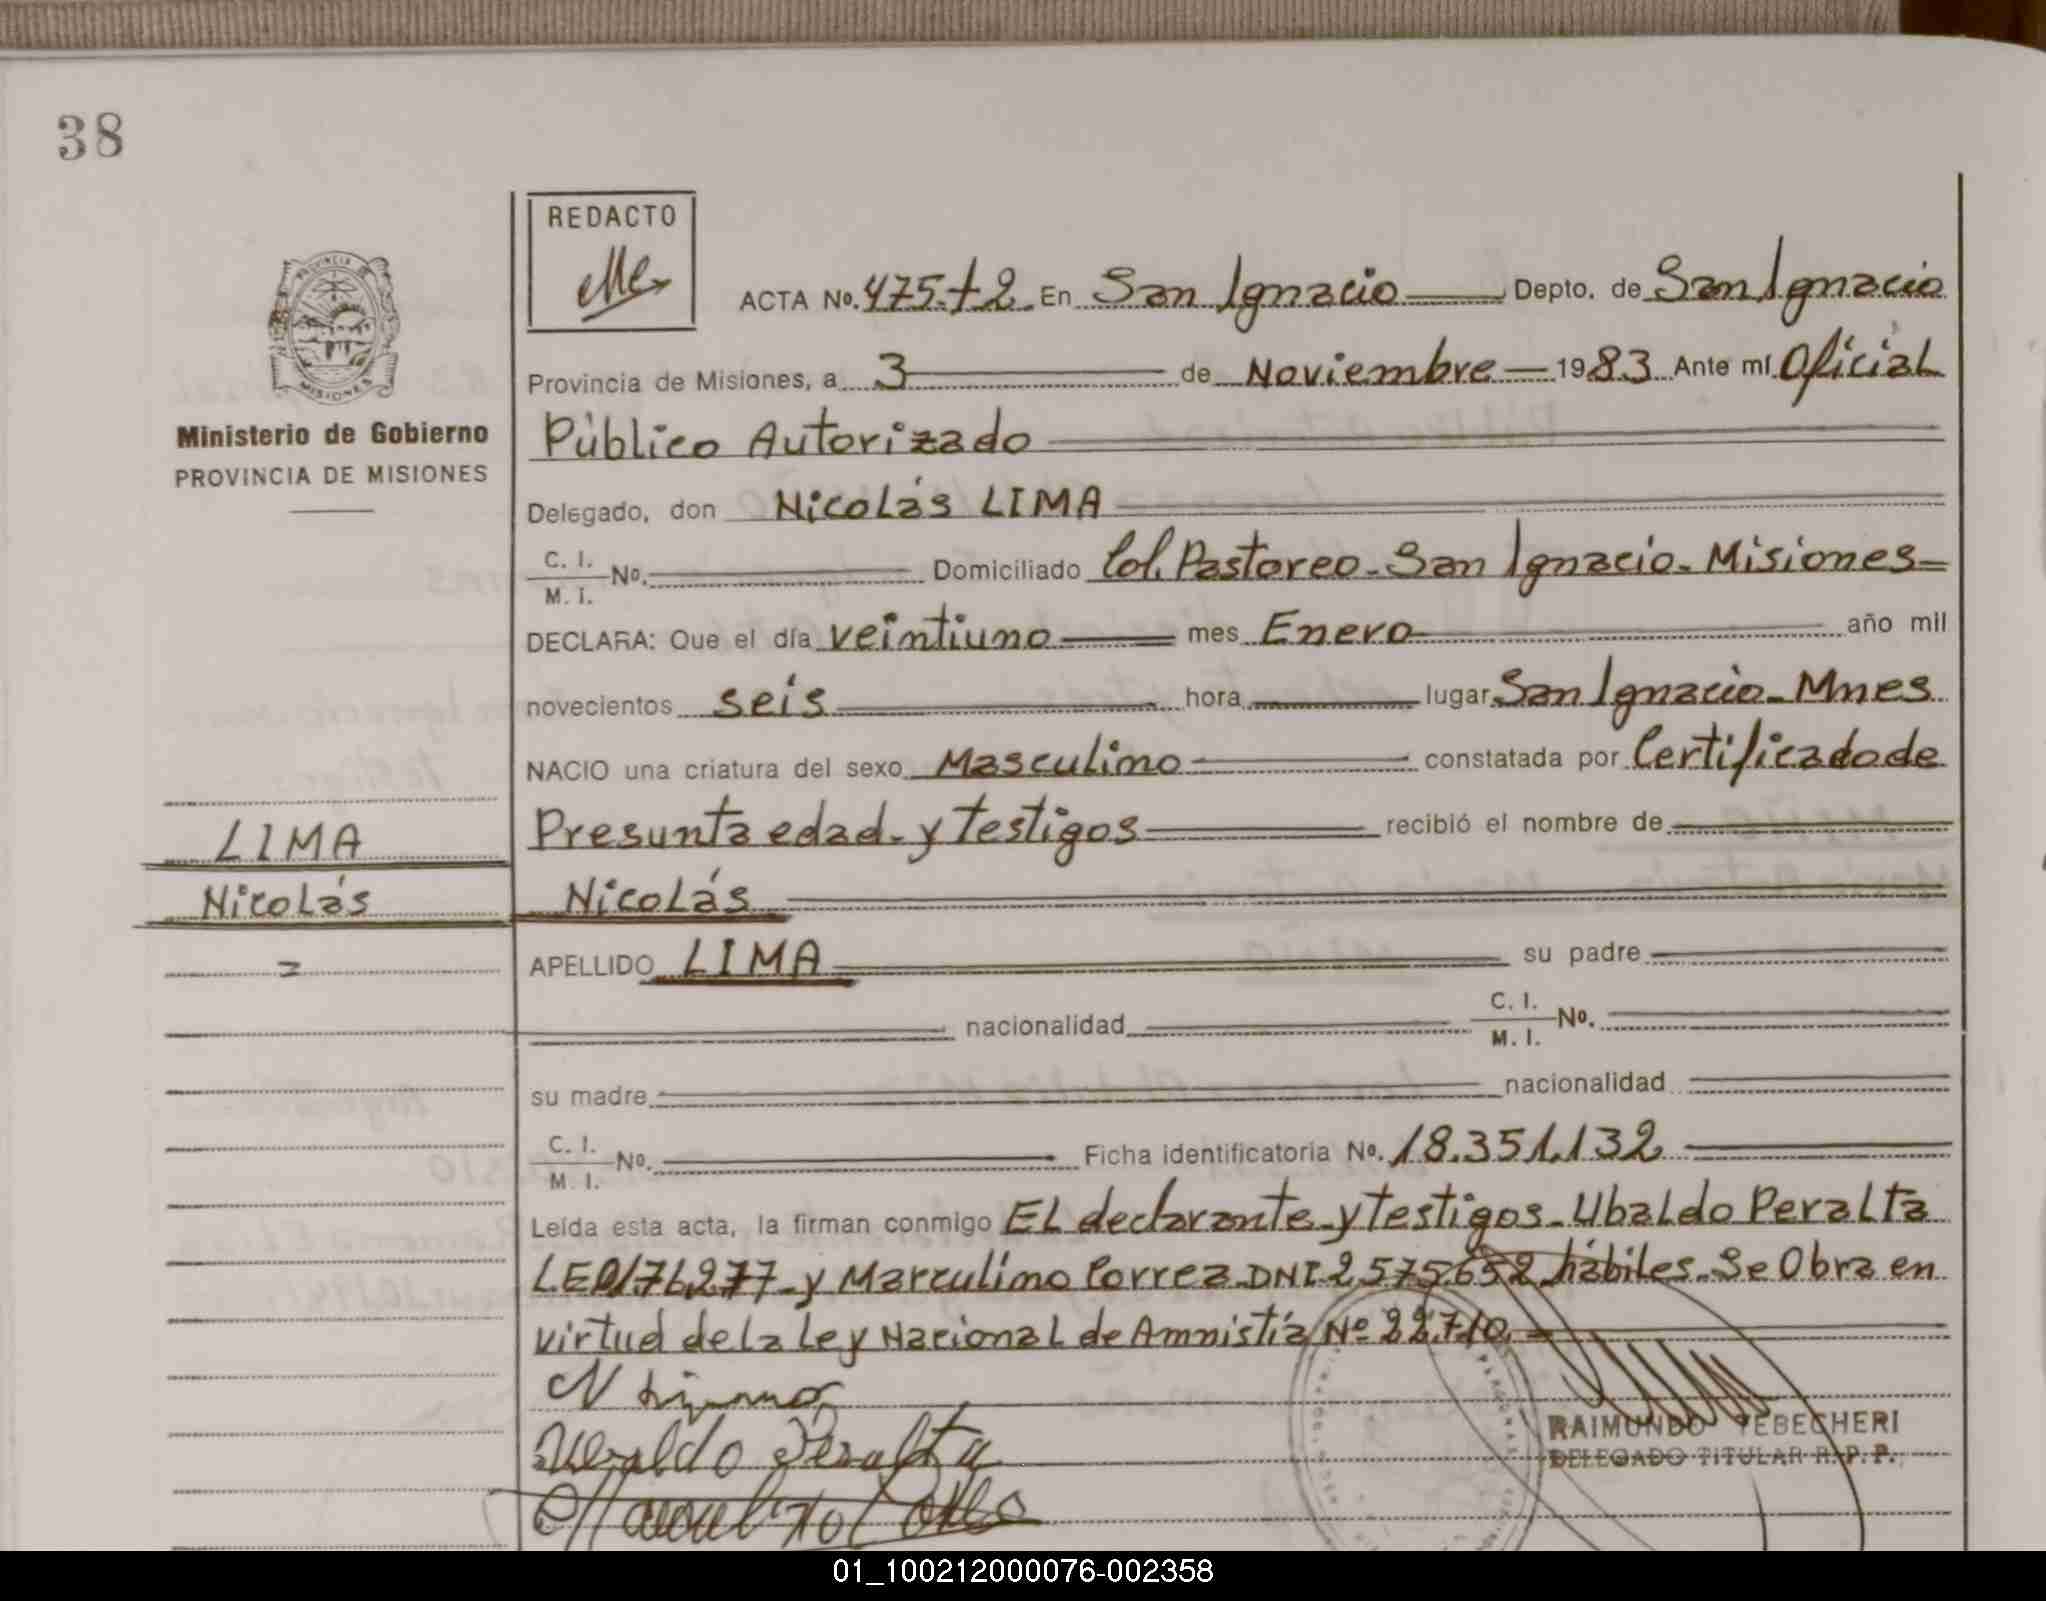 38
REDACTO
ACTA No. 475.t2. En San Ignacio Depto. de San Ignacio
Provincia de Misiones, a 3 de Noviembre 1983 Ante mí Oficial
Público Autorizado
Ministerio de Gobierno
PROVINCIA DE MISIONES
Delegado, don Nicolás LIMA
C. I. M. I. No. Domiciliado Col. Pastoreo - San Ignacio - Misiones
DECLARA: Que el día veintiuno mes Enero año mil
novecientos seis hora lugar San Ignacio - Mnes
NACIO una criatura del sexo Masculino constatada por Certificado de
Presunta edad - y testigos recibió el nombre de
LIMA
Nicolás
Nicolás
APELLIDO LIMA su padre
nacionalidad C. I. M. I. No.
su madre nacionalidad
C. I. M. I. No. Ficha identificatoria No. 18.351.132
Leída esta acta, la firman conmigo El declarante - y testigos - Ubaldo Peralta
y Marculino Correa DNI 2575652 hábiles - Se Obra en
virtud de la Ley Nacional de Amnistía Nº 22.710
Ubaldo Peralta
RAIMUNDO TEBECHERI
DELEGADO TITULAR R. P. P.
01_100212000076-002358